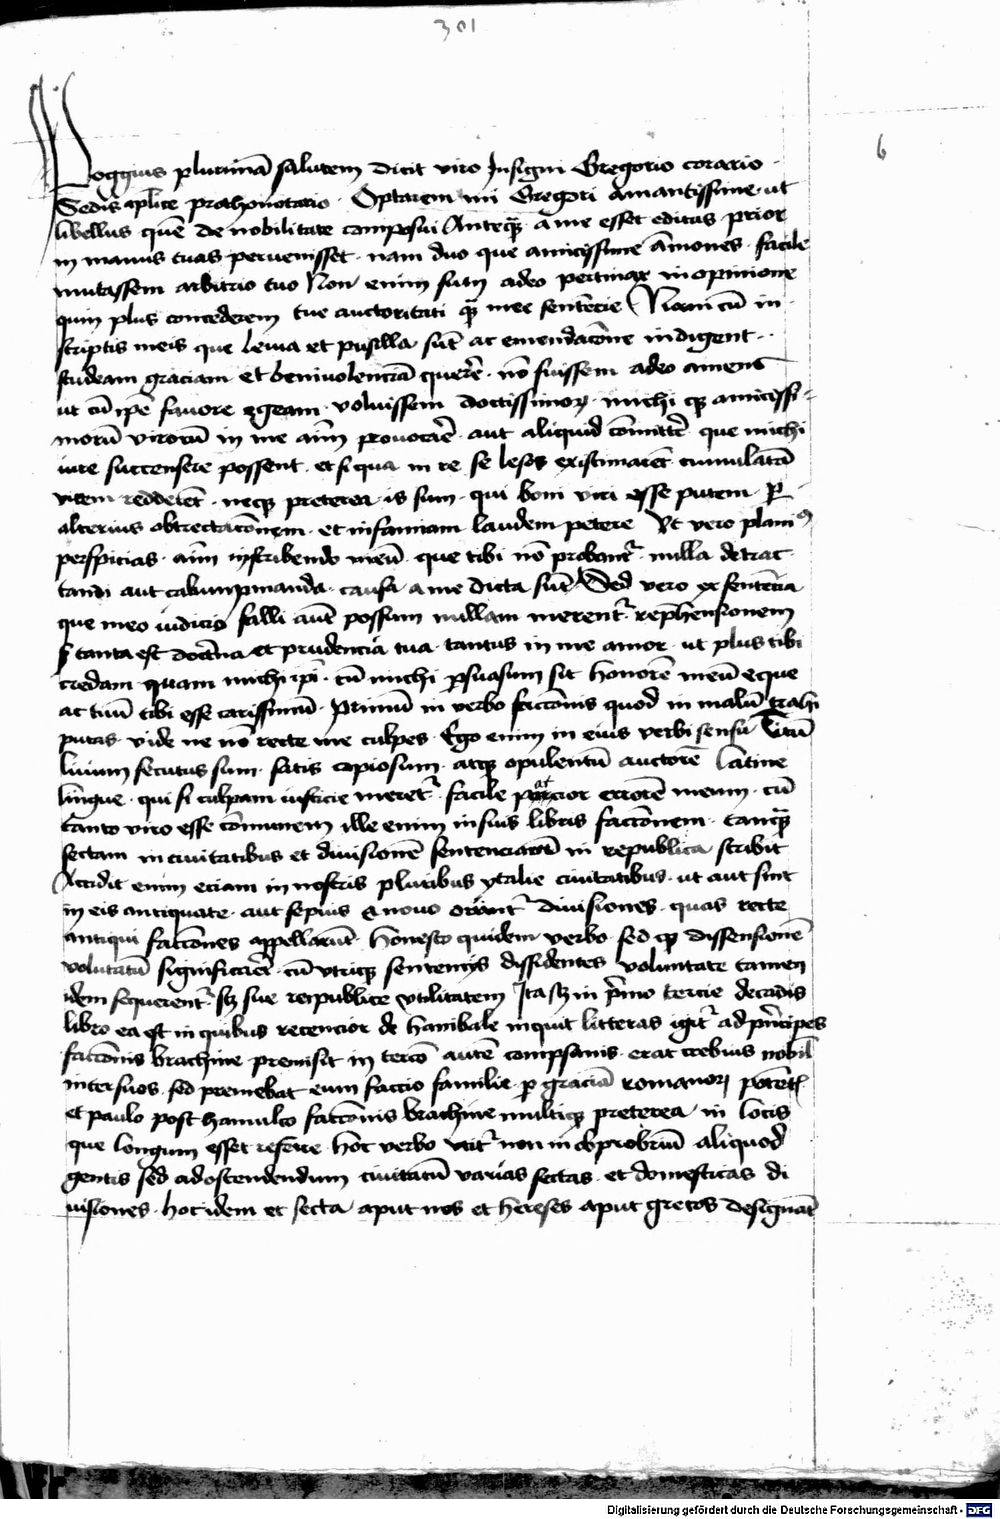 301
6
Poggius plurimā salutem dicit viro Insigni Gregorio corario
Sedis aplice prothonotario · Optarem mi Gregori amantissime · ut
libellus quē de nobilitate composui Anteqȝ a me esset editus prior
in manus tuas pervenisset · nam duo que amicissime āmones · facile
mutassem arbitrio tuo Non enim sum adeo pertinax in opinione
quin plus concederem tue auctoritati qȝ mee sentencie Nam cū in
scriptis meis que levia et pusilla sūt ac emendacōne indigent ·
studeam graciam et benivolenciā querē · nō fuissem adeo amens
ut cū ipē favore egeam · voluissem doctissimoꝝ · michi qȝ amicissi
morū virorū in me aīm provocarē · aut aliquid cōmittē · que michi
iure succensere possent · et si qua in re se lesos existimarēt cumulatā
vicem redderēt · necqȝ preterea is sum · qui boni viri esse putem · ꝑ
alterius obtrectacōnem · et infamiam laudem petere Ut vero planiꝰ
perspicias · aīm in scribendo meū · que tibi nō probantᷣ · nulla detrac
tandi aut calumpnianda · causa a me dicta sūt Sed vero ex sentēcia
que meo iudicio falli autē possum nullam merentᷣ · rep̄hensionem
ꝭ tanta est doctīna et prudencia tua · tantus in me amor · ut plus tibi
credam quam michi ip̄i · cū michi ꝑsuasum sit honorē meū eque
ac tuū tibi esse carissimū · Primū in verbo faccōnis quod in malū trahi
putas · vide ne nō recte me culpes · Ego enim in eius verbi sensu Titū
livium secutus sum · satis copiosum · atqȝ opulentū auctorē latine
lingue · qui si culpam iusticie meretᷣ · facile pacior errorē meum · cū
tanto viro esse cōmunem ille enim in suis libris faccōnem · tanqȝ
sectam in civitatibus et divisionē sentenciarū in republica scribit
Accidit enim eciam in nostris pluribus ytalie civitatibus · ut aut sint
in eis antiquate · aut sepius a novo oriantᷣ divisiones · quas recte
antiqui faccōnes appellarūt · honesto quidem verbo · sed qȝ dissensionē
volūtatū significarēt · cū utriqȝ sentenciis dissidentes voluntate tamen
idem sequerentᷣ · sȝ sue reipublice utilitatem Ita sȝ in p̄mo tercie decadis
libro ea est in quibus recencior de hanibale inquit litteras igitᷣ ad p̄ncipes
faccōnis brachine premisit in tercō autē compsanis · erat trebius nobīl
inter suos · sed premebat eum faccio familie · ꝑ graciā romanoꝝ potētē
et paulo post hamulco faccōnis brachine multiqȝ preterea in locis
que longum esset referre · hoc verbo utitᷣ non in obprobriū aliquod
gentis sed ad ostendendum civitatū varias sectas · et domesticas di
visiones · hoc idem et secta · aput nos et hereses aput grecos designāt
Digitalisierung gefördert durch die Deutsche Forschungsgemeinschaft - DFG